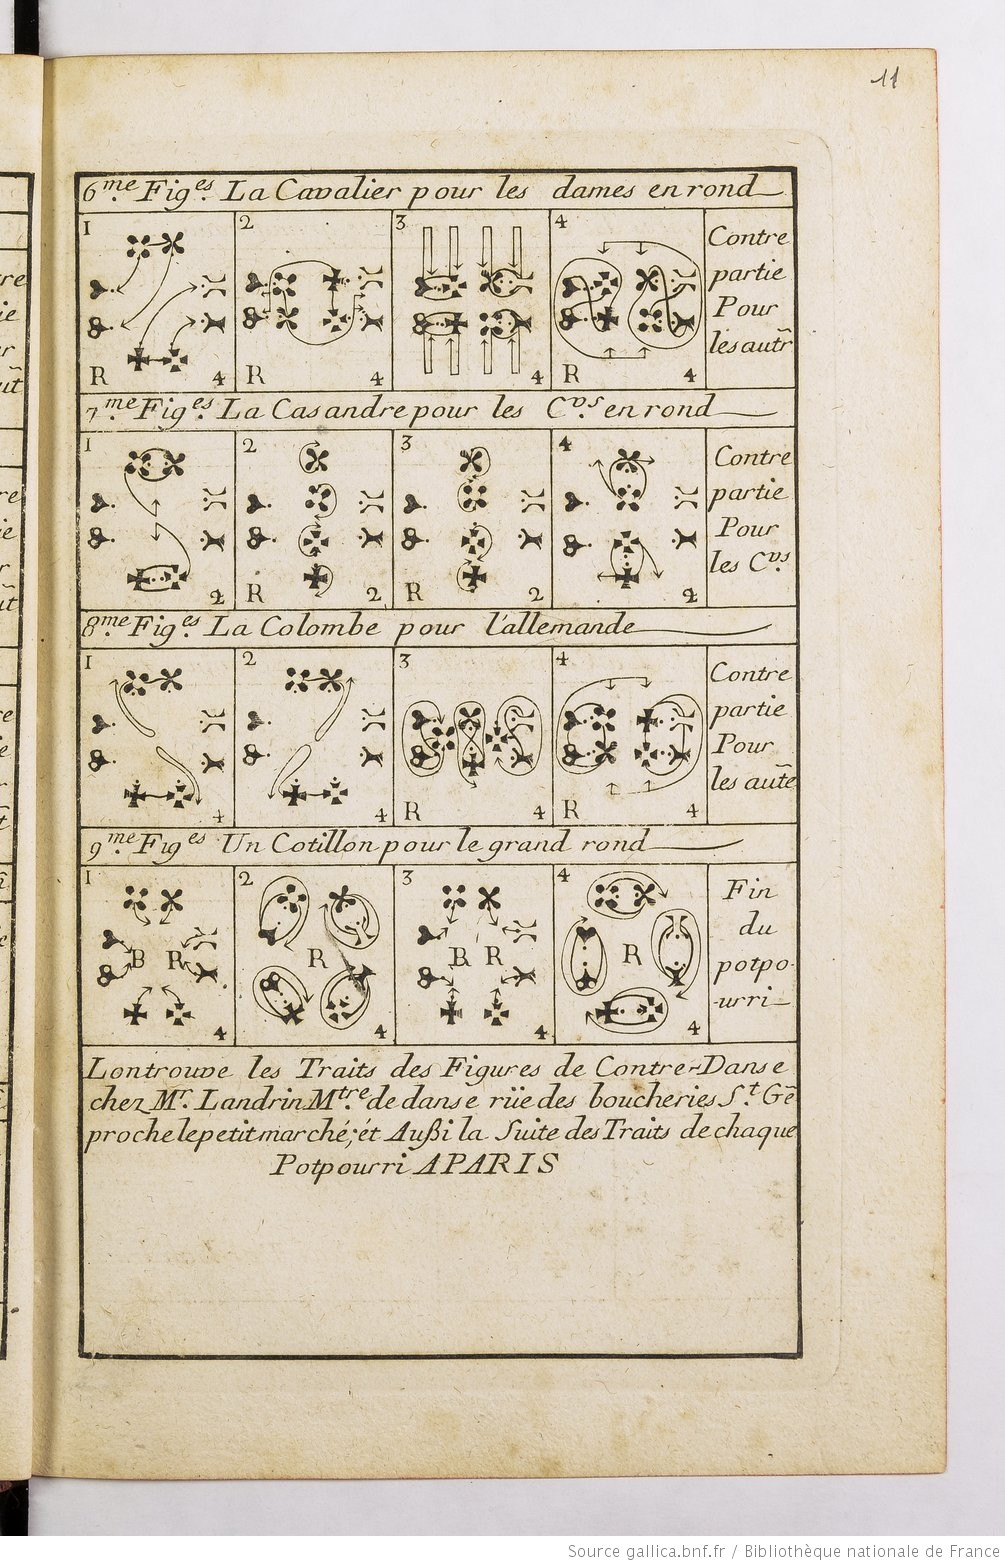 11
6.me Fig.es La Cavalier pour les dames en rond
1 2 3 4
Contre
partie
Pour
les autr̃
R 4 R 4 4 R 4
7.me Fig.es La Casandre pour les C.vs en rond
1 2 3 4
Contre
partie
Pour
les C.vs
2 R 2 R 2 2
8.me Fig.es La Colombe pour l'allemande
1 2 3 4
Contre
partie
Pour
les aut̃e
4 4 R 4 R 4
9.me Fig.es Un Cotillon pour le grand rond
1 2 3 4
Fin
du
potpo-
urri
B R R B R R
4 4 4 4
Lontrouve les Traits des Figures de Contre-Danse
chez Mr. Landrin Mtre. de danse rüe des boucheries St. Gẽ
proche le petit marché; ét Außi la Suite des Traits de chaque
Potpourri A PARIS
Source gallica.bnf.fr / Bibliothèque nationale de France